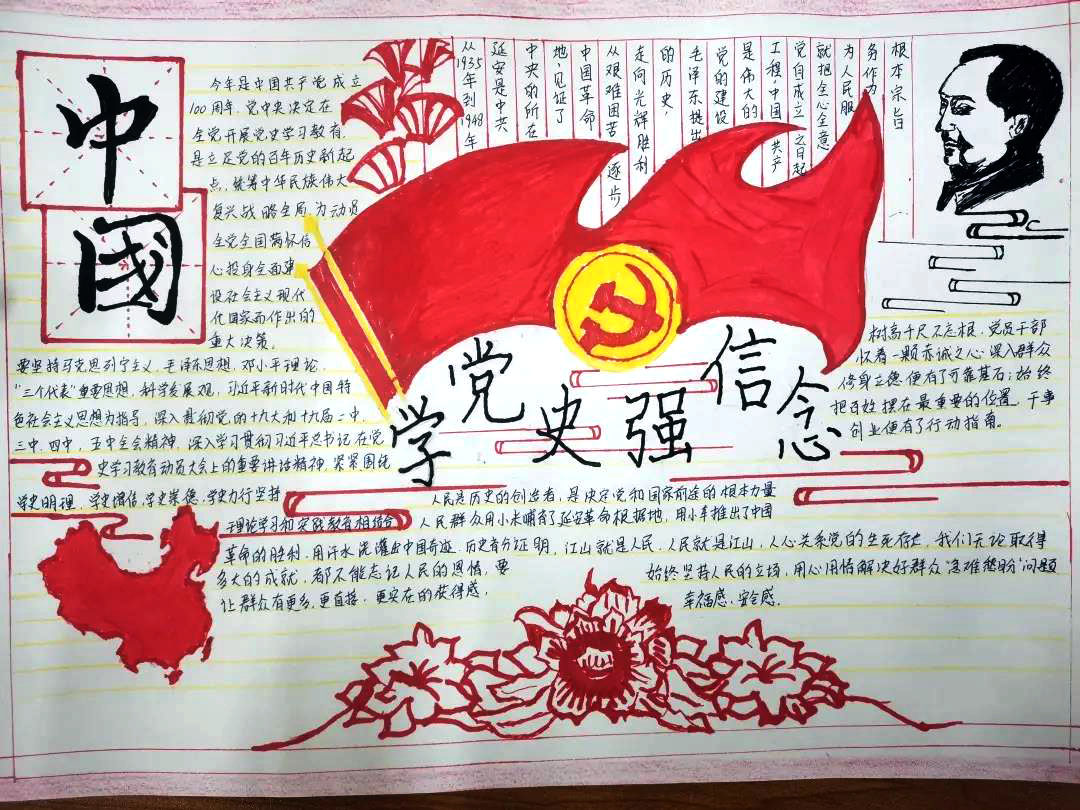 中
國
今年是中国共产党成立
100周年,党中央决定在
全党开展党史学习教育,
是立足党的百年历史新起
点,统筹中华民族伟大
复兴战略全局,为动员
全党全国满怀信
心投身全面建
设社会主义现代
代国家而作出的
重大决策。
要坚持马克思列宁主义、毛泽东思想、邓小平理论、
“三个代表”重要思想、科学发展观、习近平新时代中国特
色社会主义思想为指导,深入贯彻党的十九大和十九届二中、
三中、四中、五中全会精神,深入学习贯彻习近平总书记在党
史学习教育动员大会上的重要讲话精神,紧紧围绕
学史明理、学史增信、学史崇德、学史力行坚持
理论学习和实践教育相结合
从1935年到1948年
延安是中共
中央的所在
地,见证了
中国革命
从艰难困苦逐步
走向光辉胜利
的历史,
毛泽东提出
党的建设
是伟大的
工程,中国共产
党自成立之日起
就把全心全意
为人民服
务作为
根本宗旨
学党史强信念
树高千尺不忘根,党员干部
怀着一颗赤诚之心,深入群众
修身立德,便有了可靠基石;始终
把百姓摆在最重要的位置,干事
创业便有了行动指南。
人民是历史的创造者,是决定党和国家前途的根本力量
人民群众用小米哺育了延安革命根据地,用小车推出了中国
革命的胜利,用汗水浇灌出中国奇迹,历史充分证明,江山就是人民,人民就是江山,人心关系党的生死存亡,我们无论取得
多大的成就,都不能忘记人民的恩情,要
始终坚持人民的立场,用心用情解决好群众“急难愁盼”问题
让群众有更多、更直接、更实在的获得感、
幸福感、安全感.